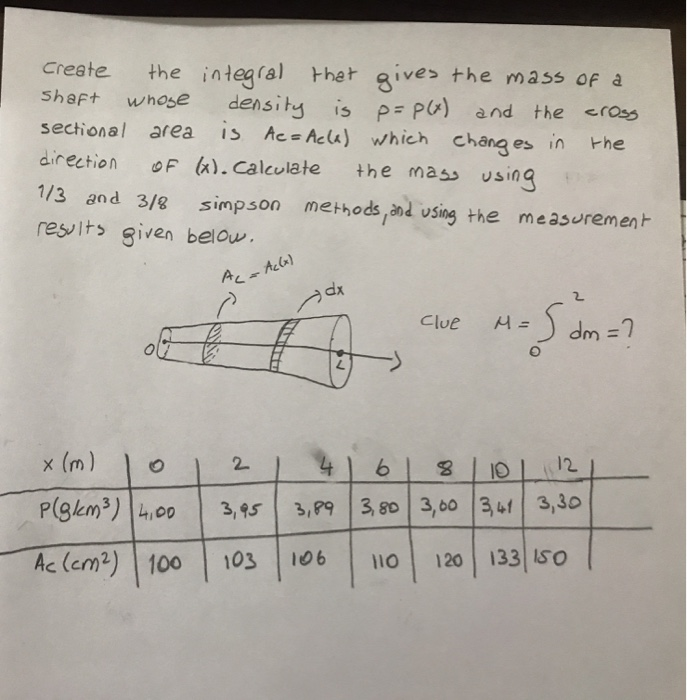 Create the integral that gives the mass of a
shaft whose density is ρ = ρ(x) and the cross
sectional area is Ac = Ac(x) which changes in the
direction of (x). Calculate the mass using
1/3 and 3/8 simpson methods, and using the measurement
results given below.
Ac = Ac(x)
dx
Clue M = ∫₀² dm = ?
0 L
x (m) 0 2 4 6 8 10 12
ρ(g/cm³) 4,00 3,95 3,89 3,80 3,60 3,41 3,30
Ac (cm²) 100 103 106 110 120 133 150